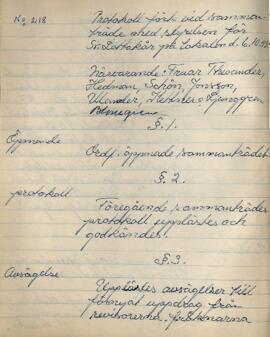 No 218
Protokoll fört vid samman-
träde med styrelsen för
Sv. Lottakår på Lokalen d. 6.10.
Närvarande: Fruar Thevander,
Hedman, Schön, Jonsson,
Ulander,
§.1.
Öppnande
Ordf. öppnade sammanträdet.
§.2.
protokoll
Föregående sammanträdes
protokoll upplästes och
godkändes.
§.3.
Avsägelse
Upplästes avsägelser till
förnyat uppdrag från
revisorerna. fröknarna